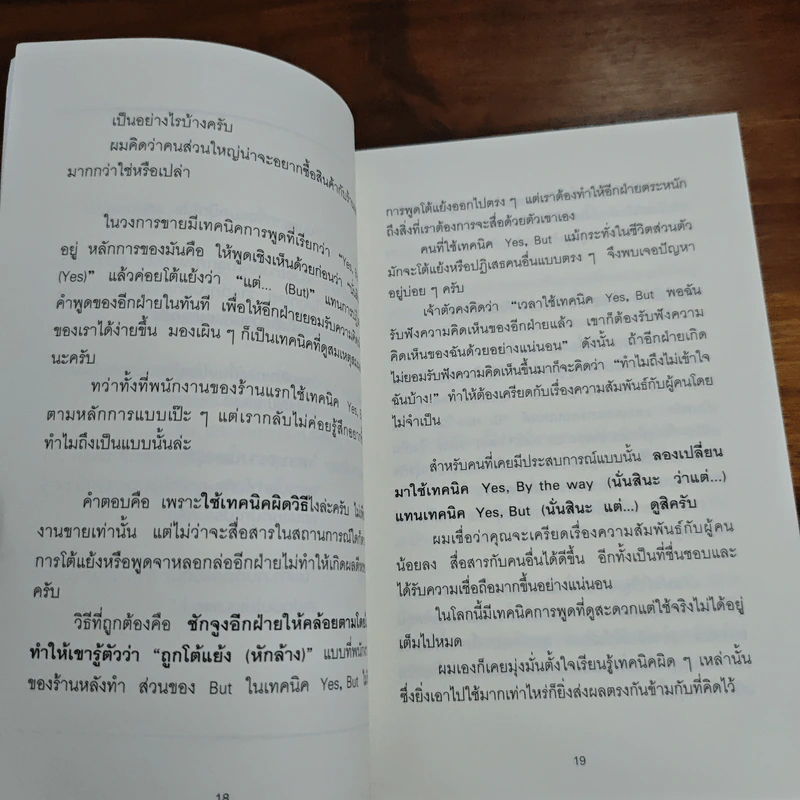 เป็นอย่างไรบ้างครับ
ผมคิดว่าคนส่วนใหญ่น่าจะอยากซื้อสินค้ากับร้าน
มากกว่าใช่หรือเปล่า
ในวงการขายมีเทคนิคการพูดที่เรียกว่า “Yes,
อยู่ หลักการของมันคือ ให้พูดเชิงเห็นด้วยก่อนว่า
(Yes)” แล้วค่อยโต้แย้งว่า “แต่... (But)” แทนการ
คำพูดของอีกฝ่ายในทันที เพื่อให้อีกฝ่ายยอมรับความคิด
ของเราได้ง่ายขึ้น มองเผิน ๆ ก็เป็นเทคนิคที่ดูสมเหตุสมผล
นะครับ
ทว่าทั้งที่พนักงานของร้านแรกใช้เทคนิค Yes,
ตามหลักการแบบเป๊ะ ๆ แต่เรากลับไม่ค่อยรู้สึกอยาก
ทำไมถึงเป็นแบบนั้นล่ะ
คำตอบคือ เพราะใช้เทคนิคผิดวิธีไงล่ะครับ
งานขายเท่านั้น แต่ไม่ว่าจะสื่อสารในสถานการณ์ใด
การโต้แย้งหรือพูดจาหลอกล่ออีกฝ่ายไม่ทำให้เกิดผลดี
ครับ
วิธีที่ถูกต้องคือ ชักจูงอีกฝ่ายให้คล้อยตามโดย
ทำให้เขารู้ตัวว่า “ถูกโต้แย้ง (หักล้าง)” แบบที่พนักงาน
ของร้านหลังทำ ส่วนของ But ในเทคนิค Yes, But
18
การพูดโต้แย้งออกไปตรง ๆ แต่เราต้องทำให้อีกฝ่ายตระหนัก
ถึงสิ่งที่เราต้องการจะสื่อด้วยตัวเขาเอง
คนที่ใช้เทคนิค Yes, But แม้กระทั่งในชีวิตส่วนตัว
มักจะโต้แย้งหรือปฏิเสธคนอื่นแบบตรง ๆ จึงพบเจอปัญหา
อยู่บ่อย ๆ ครับ
เจ้าตัวคงคิดว่า “เวลาใช้เทคนิค Yes, But พอฉัน
รับฟังความคิดเห็นของอีกฝ่ายแล้ว เขาก็ต้องรับฟังความ
คิดเห็นของฉันด้วยอย่างแน่นอน” ดังนั้น ถ้าอีกฝ่ายเกิด
ไม่ยอมรับฟังความคิดเห็นขึ้นมาก็จะคิดว่า “ทำไมถึงไม่เข้าใจ
ฉันบ้าง!” ทำให้ต้องเครียดกับเรื่องความสัมพันธ์กับผู้คนโดย
ไม่จำเป็น
สำหรับคนที่เคยมีประสบการณ์แบบนั้น ลองเปลี่ยน
มาใช้เทคนิค Yes, By the way (นั่นสินะ ว่าแต่...)
แทนเทคนิค Yes, But (นั่นสินะ แต่...) ดูสิครับ
ผมเชื่อว่าคุณจะเครียดเรื่องความสัมพันธ์กับผู้คน
น้อยลง สื่อสารกับคนอื่นได้ดีขึ้น อีกทั้งเป็นที่ชื่นชอบและ
ได้รับความเชื่อถือมากขึ้นอย่างแน่นอน
ในโลกนี้มีเทคนิคการพูดที่ดูสะดวกแต่ใช้จริงไม่ได้อยู่
เต็มไปหมด
ผมเองก็เคยมุ่งมั่นตั้งใจเรียนรู้เทคนิคผิด ๆ เหล่านั้น
ซึ่งยิ่งเอาไปใช้มากเท่าไหร่ก็ยิ่งส่งผลตรงกันข้ามกับที่คิดไว้
19